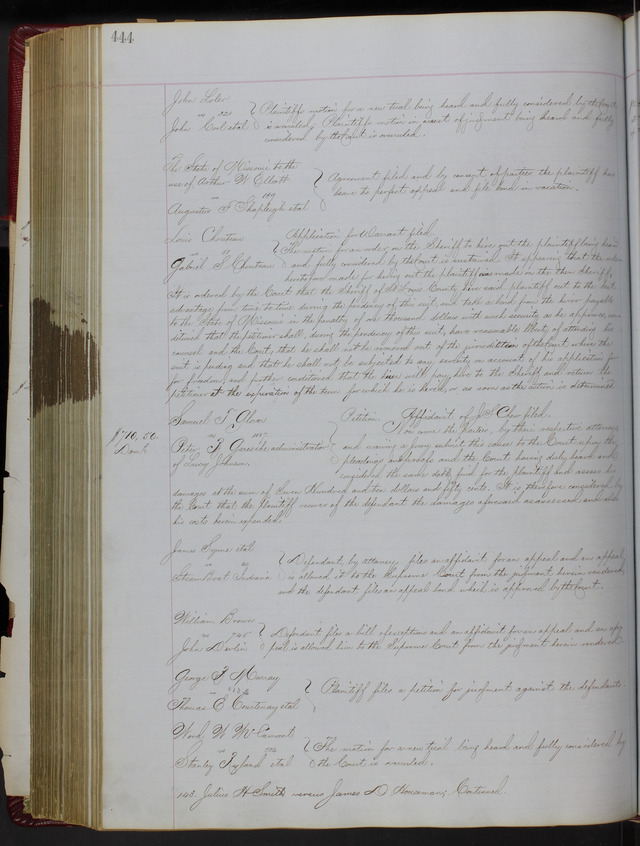 444
John Loler
vs
John Earl etal
Plaintiffs motion for a new trial being heard and fully considered by the Court
is overruled, Plaintiffs motion in arrest of judgment being heard and fully
considered by the Court is overruled.
The State of Missouri to the
use of Arthur W. E.
vs
Augustus F Shapleigh etal
Agreement filed and by consent of parties the plaintiff has
leave to perfect appeal and file bond in vacation.
Louis Chouteau
vs
Gabriel S. Chouteau
Application for Warrant filed.
The motion for an order on the Sheriff to hire out the plaintiff being heard
and fully considered by the Court is sustained. It appearing that the order
heretofore made for hiring out the plaintiff was made on the then Sheriff,
It is ordered by the Court that the Sheriff of St Louis County hire said plaintiff out to the best
advantage from time to time during the pendency of this suit, and take a bond from the hirer payable
to the State of Missouri in the penalty of one thousand dollars with such security as he approves, con
ditioned that the petitioner shall, during the pendency of the suit, have reasonable liberty of attending his
counsel and the Court, that he shall not be removed out of the jurisdiction of the Court where the
suit is pending and that he shall not be subjected to any severity on account of his application for
for freedom, and further conditioned that the hirer will pay hire to the Sheriff and return the
petitioner at the expiration of the term for which he is hired, or as soon as the action is determined.
$710,50
Samuel T. Glover
vs
Peter J. administrator
of Johnson.
Petition. Affidavit of filed.
Now come the Parties, by their respective attorneys
and waiving a jury submit this cause to the Court upon the
pleadings and proofs and the Court having duly heard and
considered the same doth find for the plaintiff and assess his
damages at the sum of Seven Hundred and ten dollars and fifty cents. It is therefore considered by
the Court that the plaintiff recover of the defendant the damages aforesaid as assessed and also
his costs herein expended.
James Syme etal
vs
Steam Boat Indiana
Defendant, by attorney files an affidavit for an appeal and an appeal
is allowed it to the Supreme Court from the judgment herein rendered
and the defendant files an appeal bond which is approved by the Court.
William Brown
vs 745
John Devlin
Defendant files a bill of exceptions and an affidavit for an appeal and an ap
peal is allowed him to the Supreme Court from the judgment herein rendered
George F Murray
vs
Thomas E Courtenay etal
Plaintiff files a petition for judgment against the defendants
Ward W
vs
Stanley Ryland etal
The motion for a new trial being heard and fully considered by
the Court is overruled.
143. Julius H Smith versus James D Houseman; Continued.